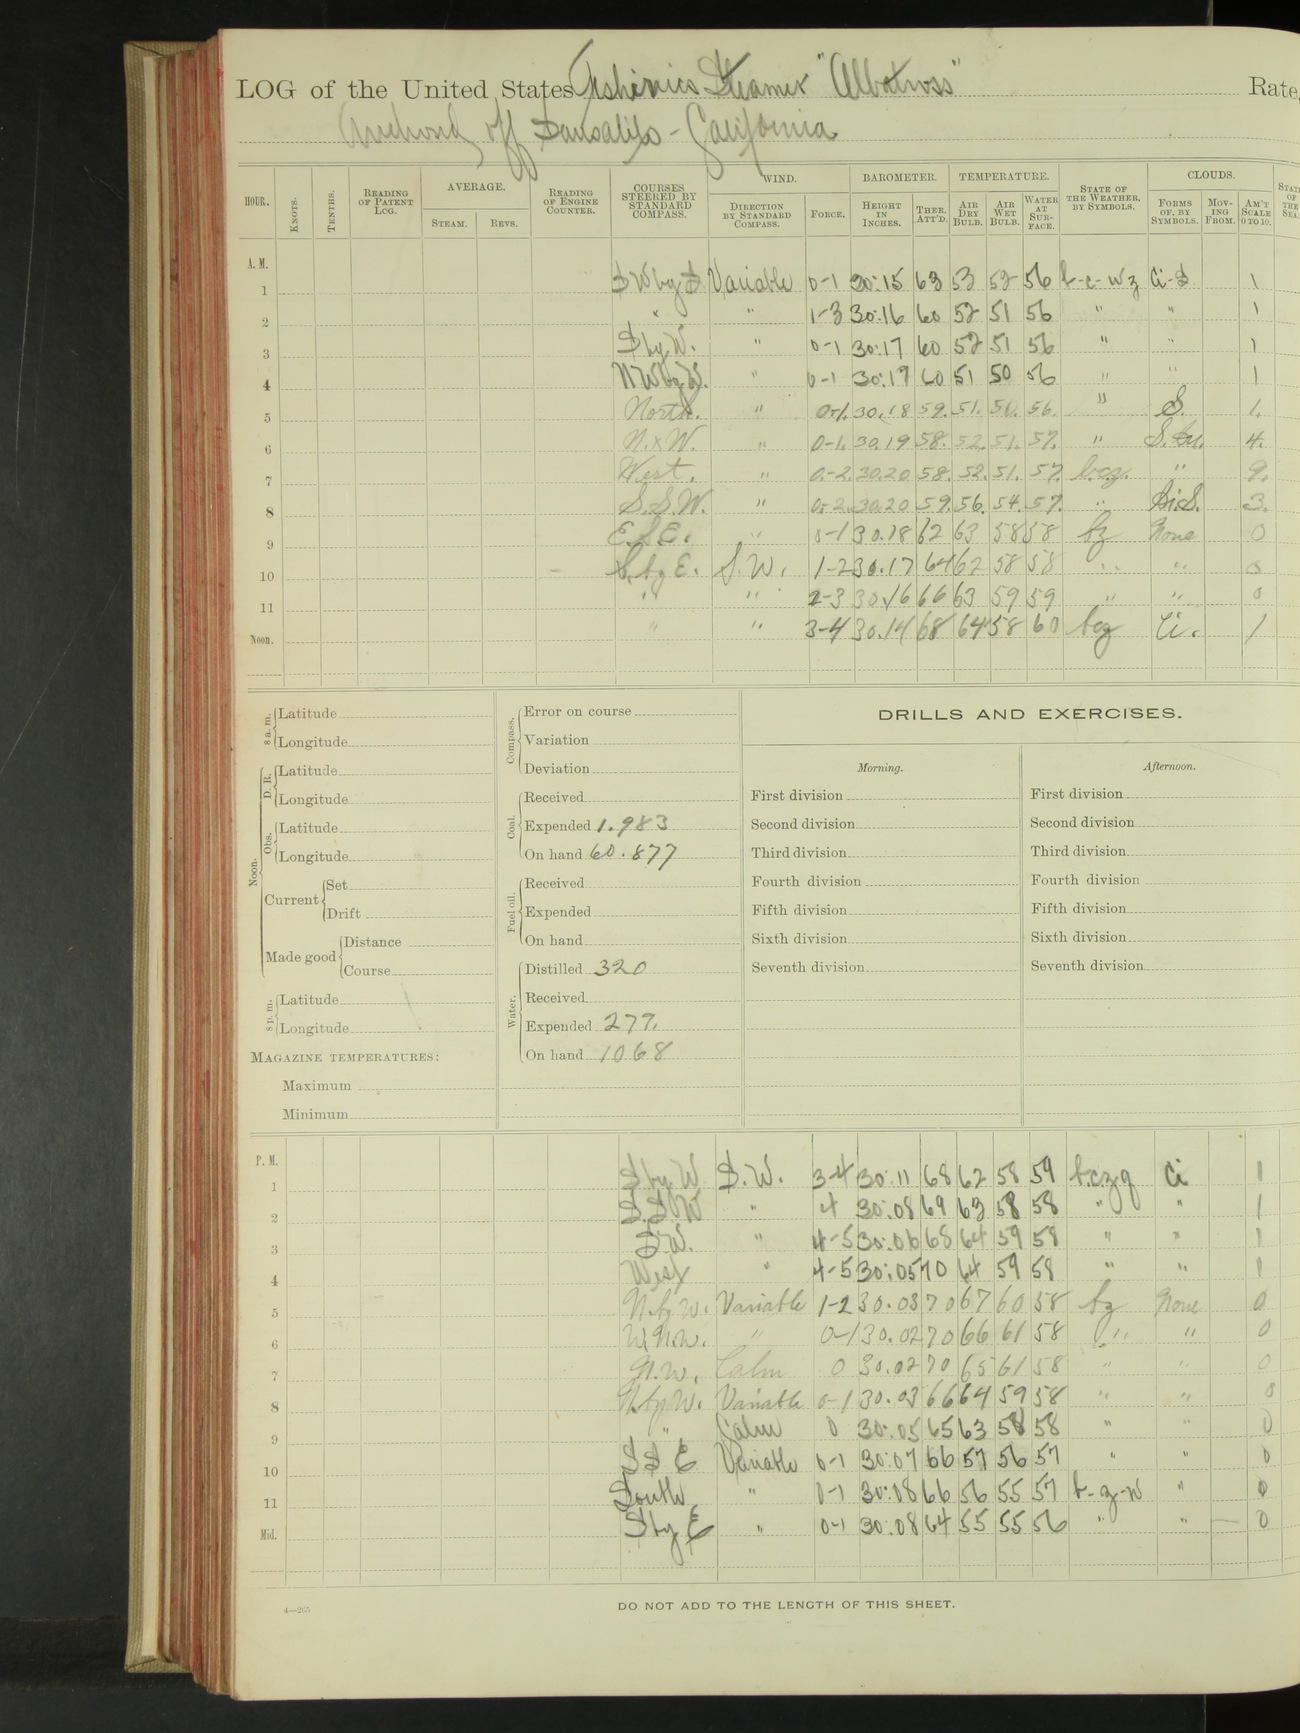 LOG of the United States Fisheries Steamer "Albatross" Rate,
Anchored off Sausalito - California
HOUR. KNOTS. TENTHS. READING OF PATENT LOG. AVERAGE. STEAM. REVS. READING OF ENGINE COUNTER. COURSES STEERED BY STANDARD COMPASS. WIND. DIRECTION BY STANDARD COMPASS. FORCE. BAROMETER. HEIGHT IN INCHES. THER. ATT'D. TEMPERATURE. AIR DRY BULB. AIR WET BULB. WATER AT SURFACE. STATE OF THE WEATHER, BY SYMBOLS. CLOUDS. FORMS OF, BY SYMBOLS. MOVING FROM. AM'T SCALE 0 TO 10. STATE OF THE SEA.
A. M.
1 SW by S Variable 0-1 30.15 63 53 52 56 b-c-wz Ci-S 1
2 " " 1-3 30.16 60 52 51 56 " " 1
3 S by W. " 0-1 30.17 60 52 51 56 " " 1
4 NW by W. " 0-1 30.17 60 51 50 56 " " 1
5 North. " 0-1. 30.18 59. 51. 50. 56. " S. 1.
6 N.xW. " 0-1. 30.19 58. 52. 51. 57. " S.Cu. 4.
7 West. " 0-2. 30.20 58. 52. 51. 57. b.c.z. " 9.
8 S.S.W. " 0-2. 30.20 59. 56. 54. 57. " Ci.S. 3.
9 E.S.E. " 0-1 30.18 62 63 58 58 bz None 0
10 S. by E. S.W. 1-2 30.17 64 62 58 58 " " 0
11 " " 2-3 30.16 66 63 59 59 " " 0
Noon. " " 3-4 30.14 68 64 58 60 bcz Ci. 1
8 a. m. Latitude
Longitude
Noon. D. R. Latitude
Longitude
Obs. Latitude
Longitude
Current Set
Drift
Made good Distance
Course
8 p. m. Latitude
Longitude
MAGAZINE TEMPERATURES:
Maximum
Minimum
Compass. Error on course
Variation
Deviation
Coal. Received
Expended 1.983
On hand 60.877
Fuel oil. Received
Expended
On hand
Water. Distilled 320
Received
Expended 277.
On hand 1068
DRILLS AND EXERCISES.
Morning. Afternoon.
First division First division
Second division Second division
Third division Third division
Fourth division Fourth division
Fifth division Fifth division
Sixth division Sixth division
Seventh division Seventh division
P. M.
1 S by W S.W. 3-4 30.11 68 62 58 59 b.c.z.q Ci 1
2 S.SW " 4 30.08 69 63 58 58 " " 1
3 S.W. " 4-5 30.06 68 64 59 58 " " 1
4 West " 4-5 30.05 70 64 59 58 " " 1
5 N. by W. Variable 1-2 30.03 70 67 60 58 bz None 0
6 W.N.W. " 0-1 30.02 70 66 61 58 " " 0
7 N.W. Calm 0 30.02 70 65 61 58 " " 0
8 N. by W. Variable 0-1 30.03 66 64 59 58 " " 0
9 " Calm 0 30.05 65 63 58 58 " " 0
10 S S E Variable 0-1 30.07 66 57 56 57 " " 0
11 South " 0-1 30.08 66 56 55 57 b-z-w " 0
Mid. S by E " 0-1 30.08 64 55 55 56 " " — 0
4—265
DO NOT ADD TO THE LENGTH OF THIS SHEET.